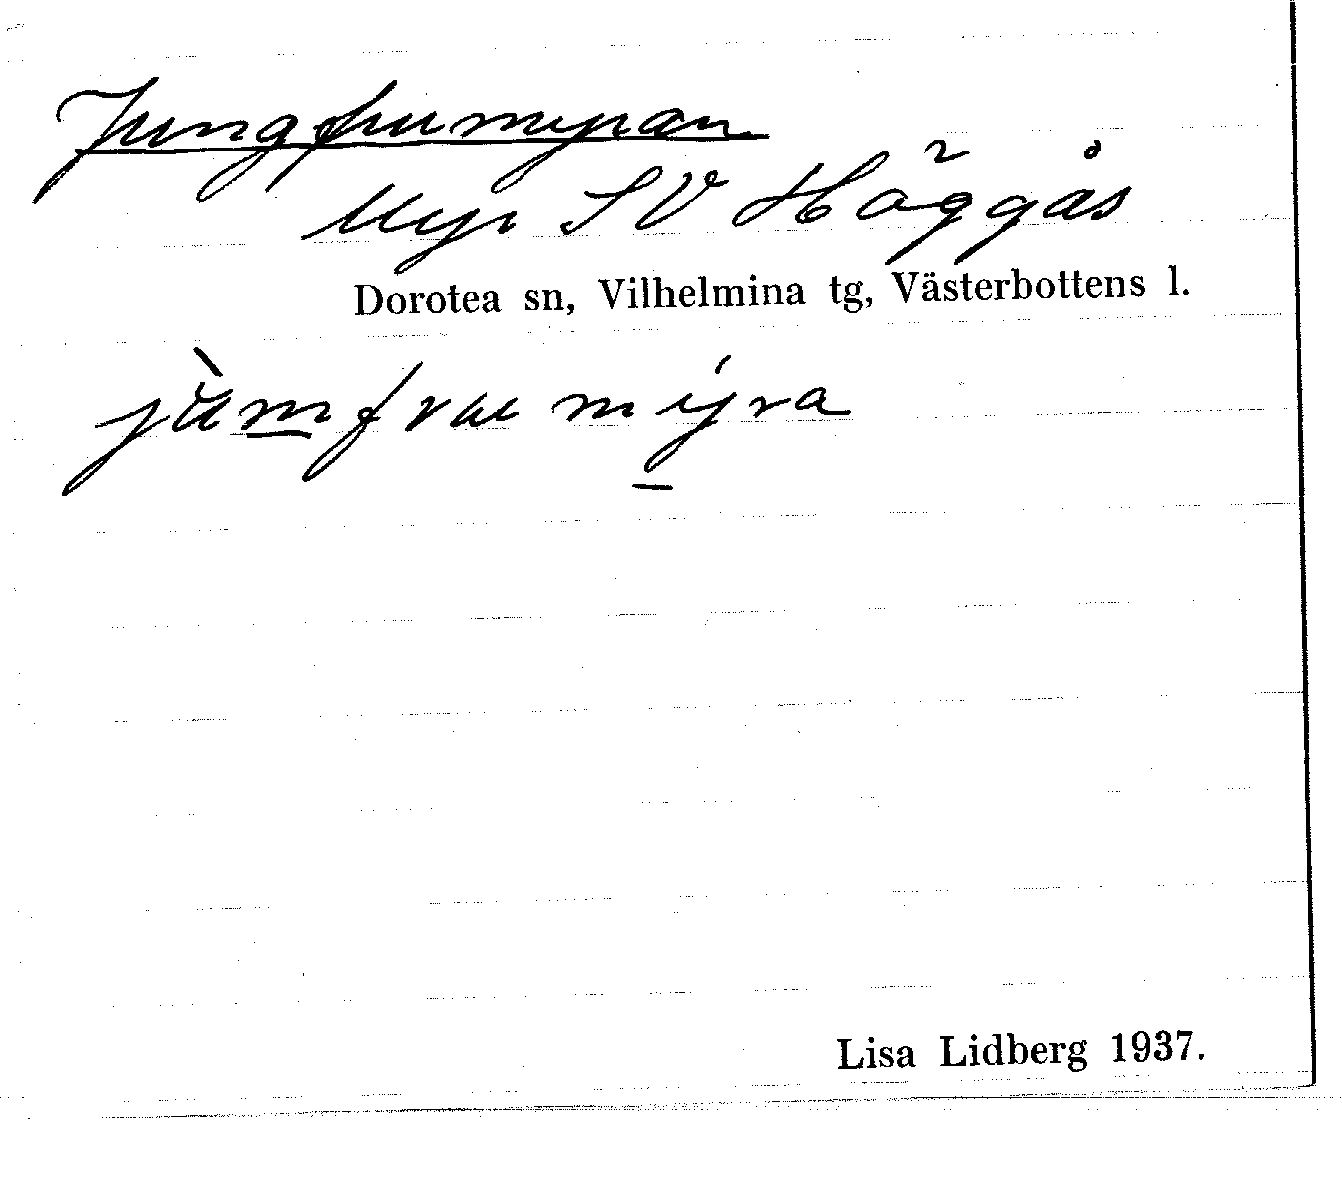 Jungfrumyran
Myr SV Häggås
Dorotea sn, Vilhelmina tg, Västerbottens l.
jù̀m̲frumý̲ra
Lisa Lidberg 1937.